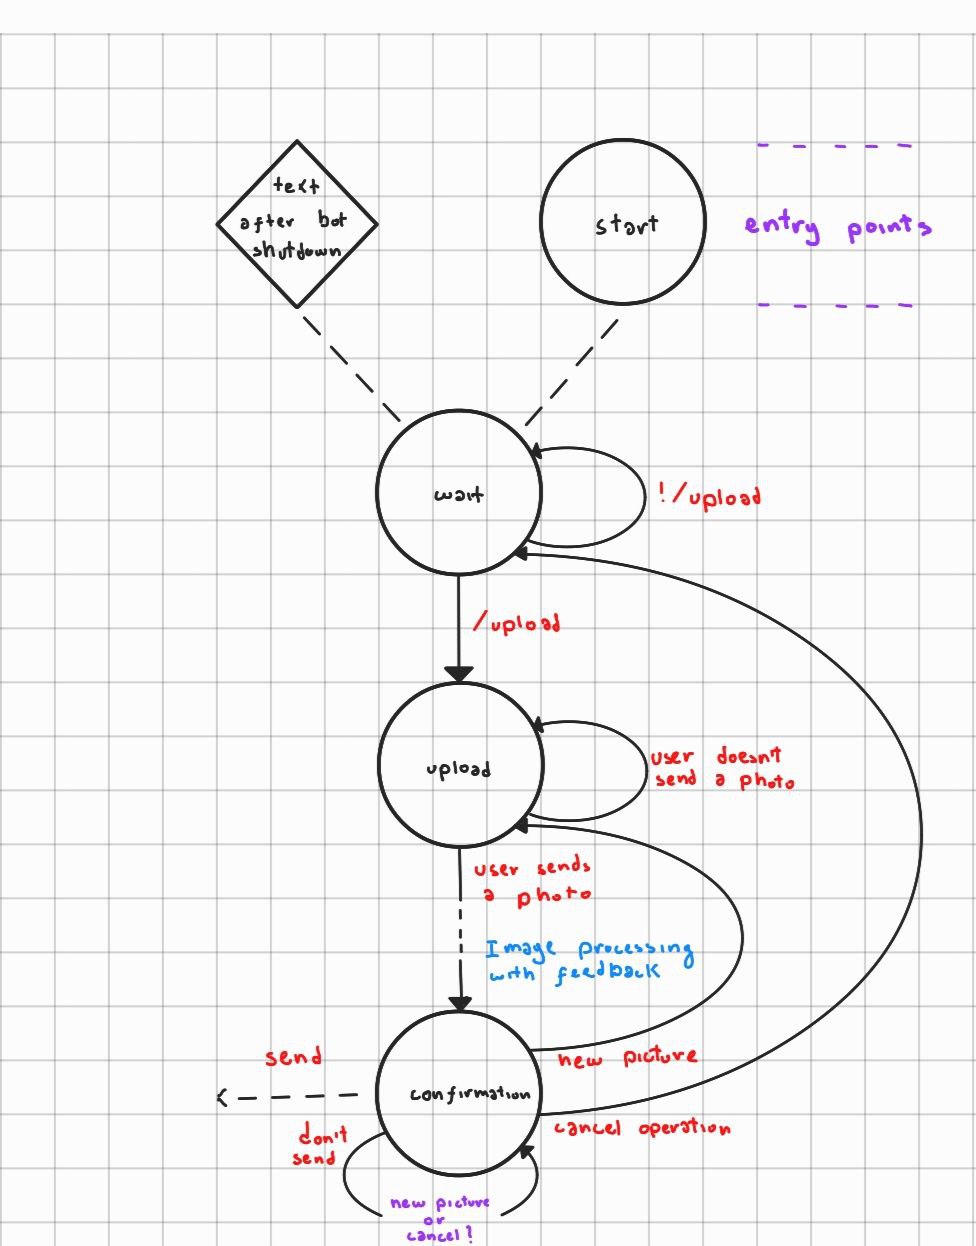 text
after bot
shutdown
start
entry points
wait
!/upload
/upload
upload
user doesn't
send a photo
user sends
a photo
Image processing
with feedback
send
new picture
confirmation
don't
send
cancel operation
new picture
or
cancel?